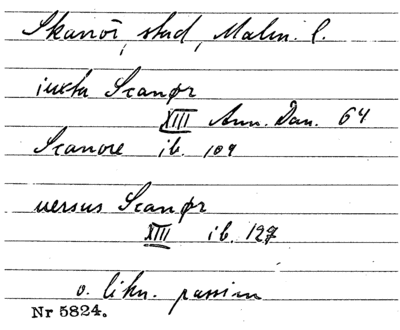 Skanör, stad, Malm. l.
iuxta Scanør
XIII Ann. Dan. 64
Scanore ib. 109
uersus Scanør
XIII ib. 127
o. likn. passim
Nr 5824.